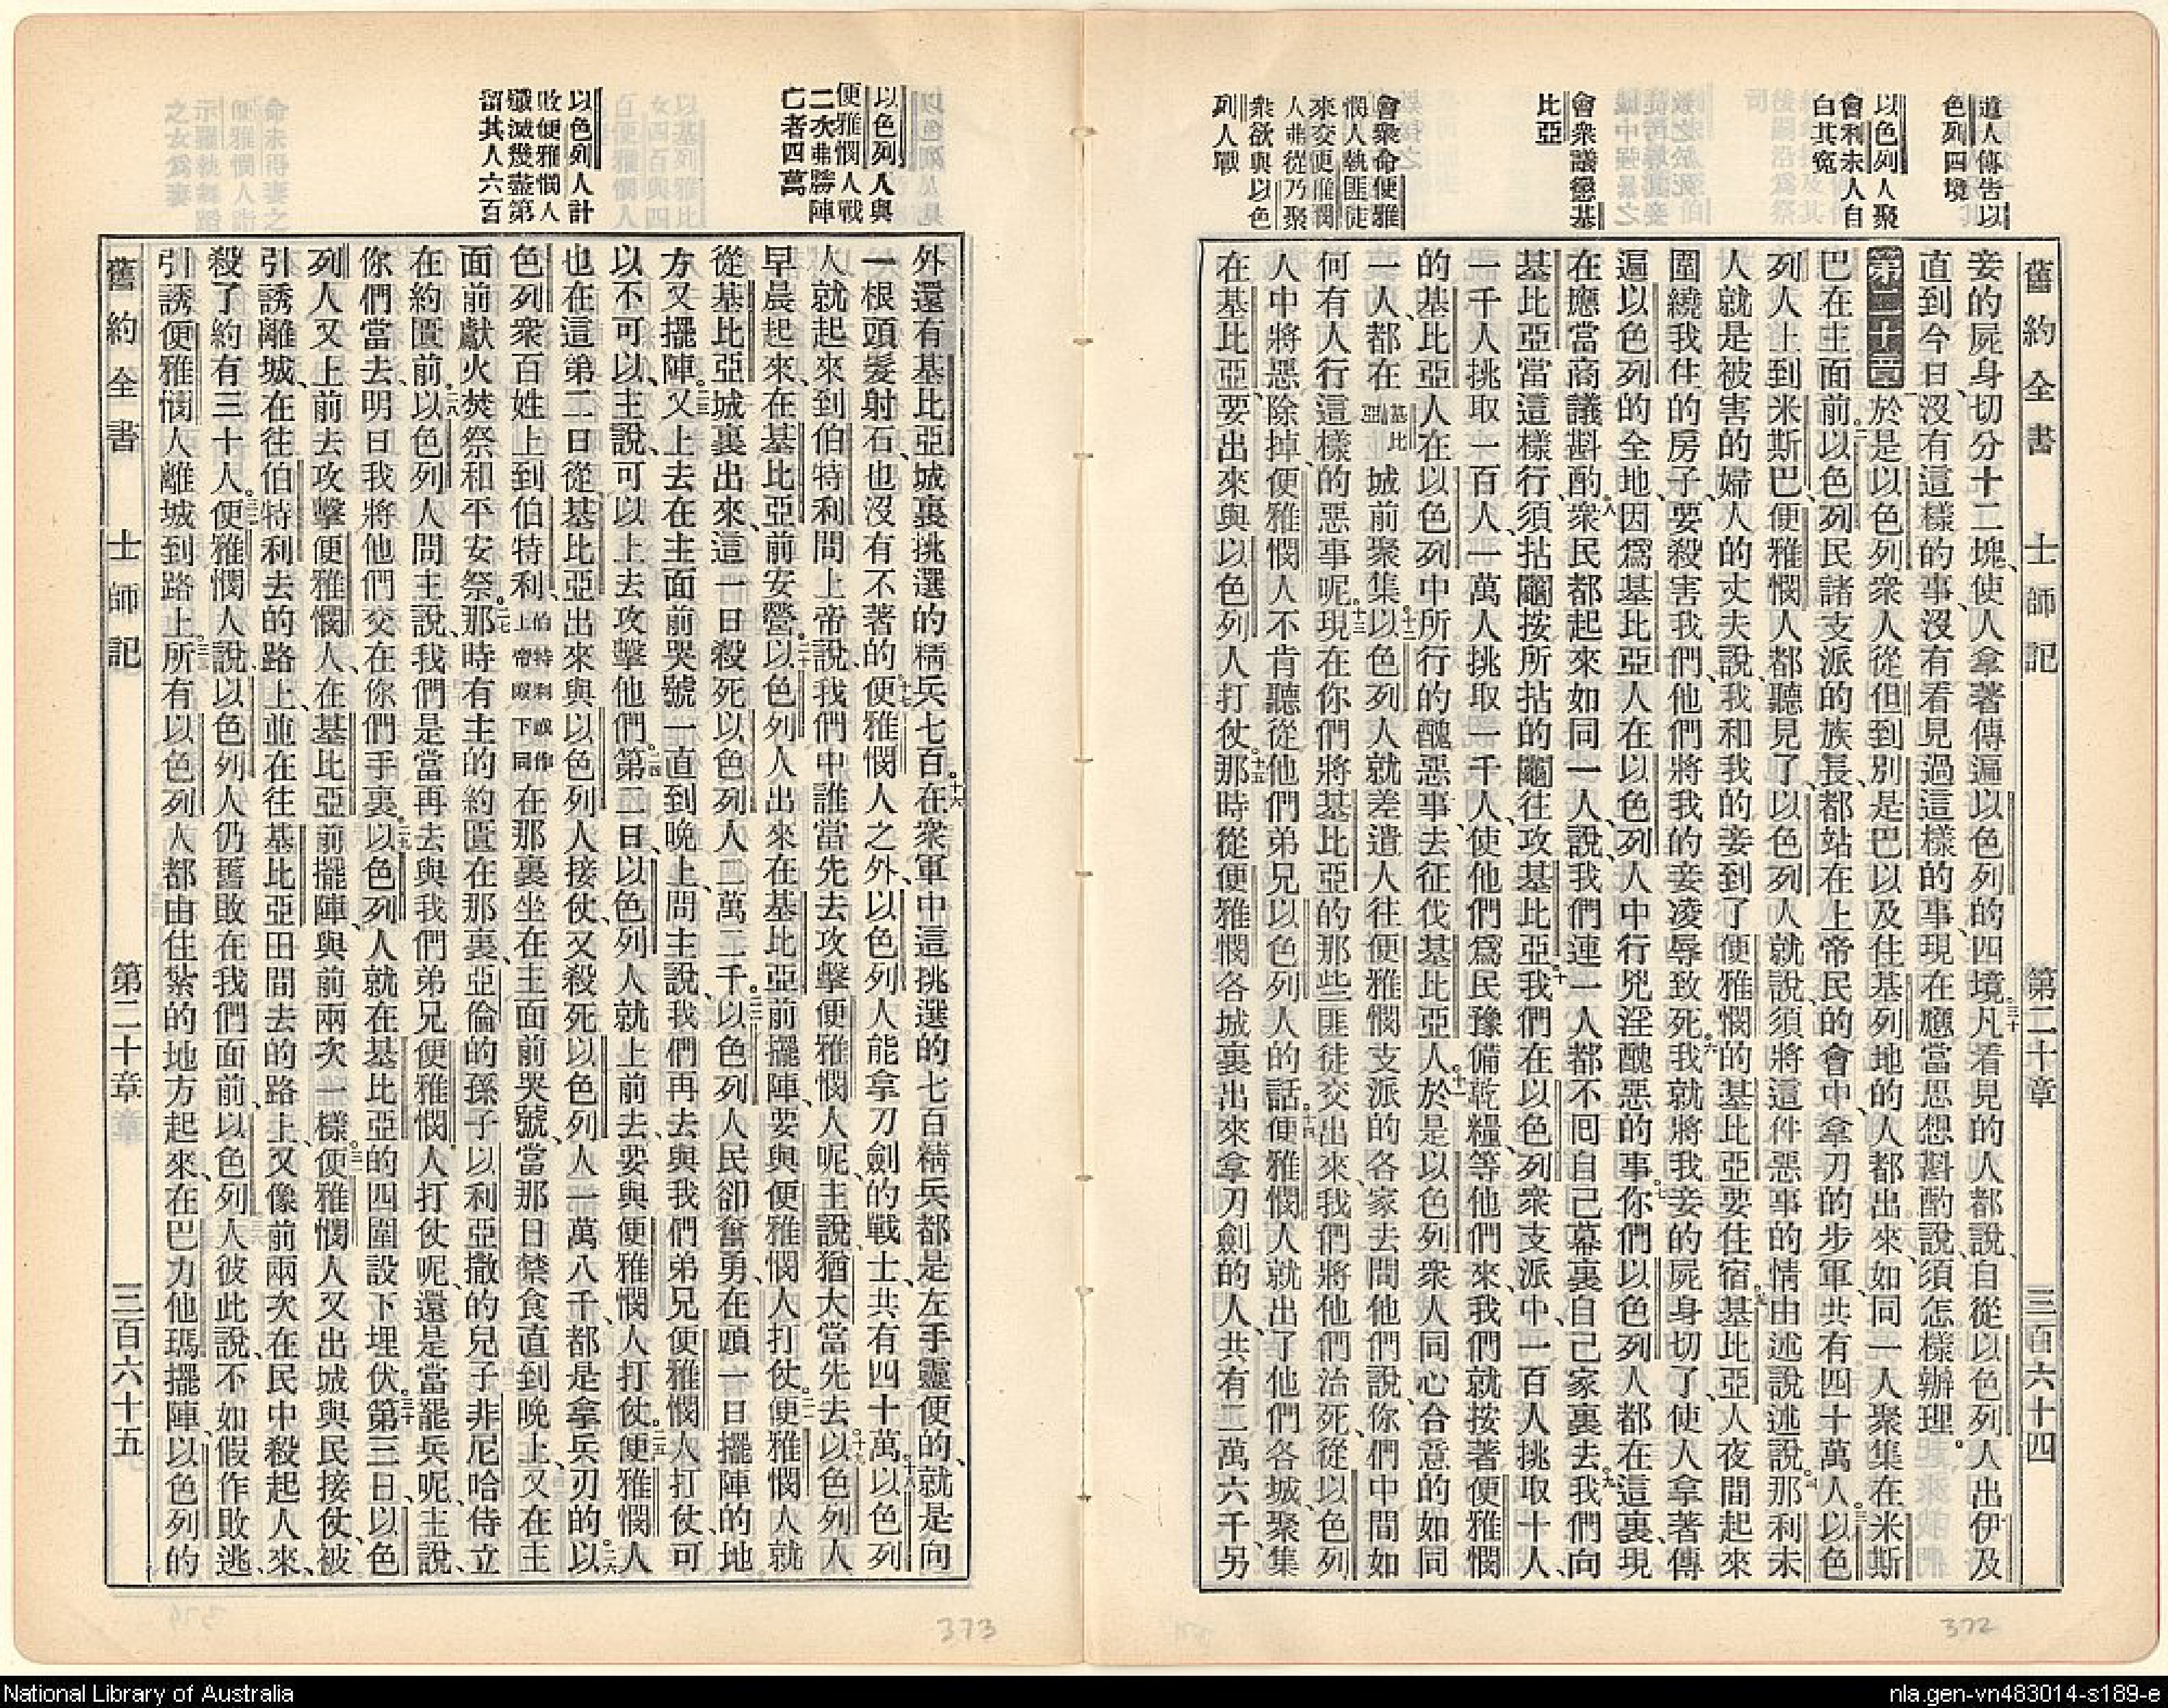 舊約全書 士師記 第二十章 三百六十四
遣人傳告以
色列四境
以色列人聚
會利未人自
白其寃
會衆議懲基
比亞
會衆命便雅
憫人執匪徒
來交便雅憫
人弗從乃聚
衆欲與以色
列人戰
妾的屍身切分十二塊、使人拿著傳遍以色列的四境、三十凡看見的人都說、自從以色列人出伊及
直到今日、沒有這樣的事、沒有看見過這樣的事、現在應當思想斟酌說、須怎樣辦理。
第二十章 於是以色列衆人從但到別是巴以及住基列地的人都出來、如同一人聚集在米斯
巴在主面前。二以色列民諸支派的族長、都站在上帝民的會中、拿刀的步軍共有四十萬人。三以色
列人上到米斯巴、便雅憫人都聽見了、以色列人就說、須將這件惡事的情由述說述說。四那利未
人就是被害的婦人的丈夫說、我和我的妾到了便雅憫的基比亞要住宿。五基比亞人夜間起來
圍繞我住的房子、要殺害我們、他們將我的妾凌辱致死。六我就將我妾的屍身切了、使人拿著傳
遍以色列的全地、因爲基比亞人在以色列人中行兇淫醜惡的事。七你們以色列人都在這裏、現
在應當商議斟酌。八衆民都起來如同一人、說、我們連一人都不囘自己幕裏自己家裏去。九我們向
基比亞當這樣行、須拈鬮按所拈的鬮往攻基比亞。十我們在以色列衆支派中、一百人挑取十人、
一千人挑取一百人、一萬人挑取一千人、使他們爲民豫備乾糧、等他們來、我們就按著便雅憫
的基比亞人在以色列中所行的醜惡事、去征伐基比亞人。十一於是以色列衆人同心合意的如同
一人、都在基比亞城前聚集。十二以色列人就差遣人往便雅憫支派的各家去問他們說、你們中間如
何有人行這樣的惡事呢。十三現在你們將基比亞的那些匪徒交出來、我們將他們治死、從以色列
人中將惡除掉、便雅憫人不肯聽從他們弟兄以色列人的話。十四便雅憫人就出了他們各城、聚集
在基比亞、要出來與以色列人打仗。十五那時從便雅憫各城裏出來拿刀劍的人、共有二萬六千、另
以色列人與
便雅憫人戰
二次弗勝陣
亡者四萬
以色列人計
敗便雅憫人
殲滅幾盡第
留其人六百
外還有基比亞城裏挑選的精兵七百。十六在衆軍中這挑選的七百精兵都是左手靈便的、就是向
一根頭髮射石、也沒有不著的。十七便雅憫人之外、以色列人能拿刀劍的戰士、共有四十萬。十八以色列
人就起來、到伯特利問上帝說、我們中誰當先去攻擊便雅憫人呢、主說、猶大當先去。十九以色列人
早晨起來、在基比亞前安營。二十以色列人出來在基比亞前擺陣、要與便雅憫人打仗。二一便雅憫人就
從基比亞城裏出來、這一日殺死以色列人二萬二千。二二以色列人民卻奮勇、在頭一日擺陣的地
方又擺陣。二三又上去在主面前哭號、一直到晚上、問主說、我們再去與我們弟兄便雅憫人打仗、可
以不可以、主說、可以上去攻擊他們。二四第二日、以色列人就上前去、要與便雅憫人打仗。二五便雅憫人
也在這第二日從基比亞出來與以色列人接仗、又殺死以色列人一萬八千、都是拿兵刃的。二六以
色列衆百姓上到伯特利、伯特利或作上帝殿下同在那裏坐在主面前哭號、當那日禁食直到晚上、又在主
面前獻火焚祭和平安祭。二七那時有主的約匱在那裏、亞倫的孫子以利亞撒的兒子非尼哈侍立
在約匱前。二八以色列人問主說、我們是當再去與我們弟兄便雅憫人打仗呢、還是當罷兵呢、主說、
你們當去、明日我將他們交在你們手裏。二九以色列人就在基比亞的四圍設下埋伏。三十第三日、以色
列人又上前去攻擊便雅憫人、在基比亞前擺陣、與前兩次一樣。三一便雅憫人又出城與民接仗、被
引誘離城、在往伯特利去的路上、並在往基比亞田間去的路上、又像前兩次在民中殺起人來、
殺了約有三十人。三二便雅憫人說、以色列人仍舊敗在我們面前、以色列人彼此說、不如假作敗逃、
引誘便雅憫人離城到路上。三三所有以色列人都由住紮的地方起來、在巴力他瑪擺陣、以色列的
舊約全書 士師記 第二十章 三百六十五
373
372
National Library of Australia
nla.gen-vn483014-s189-e